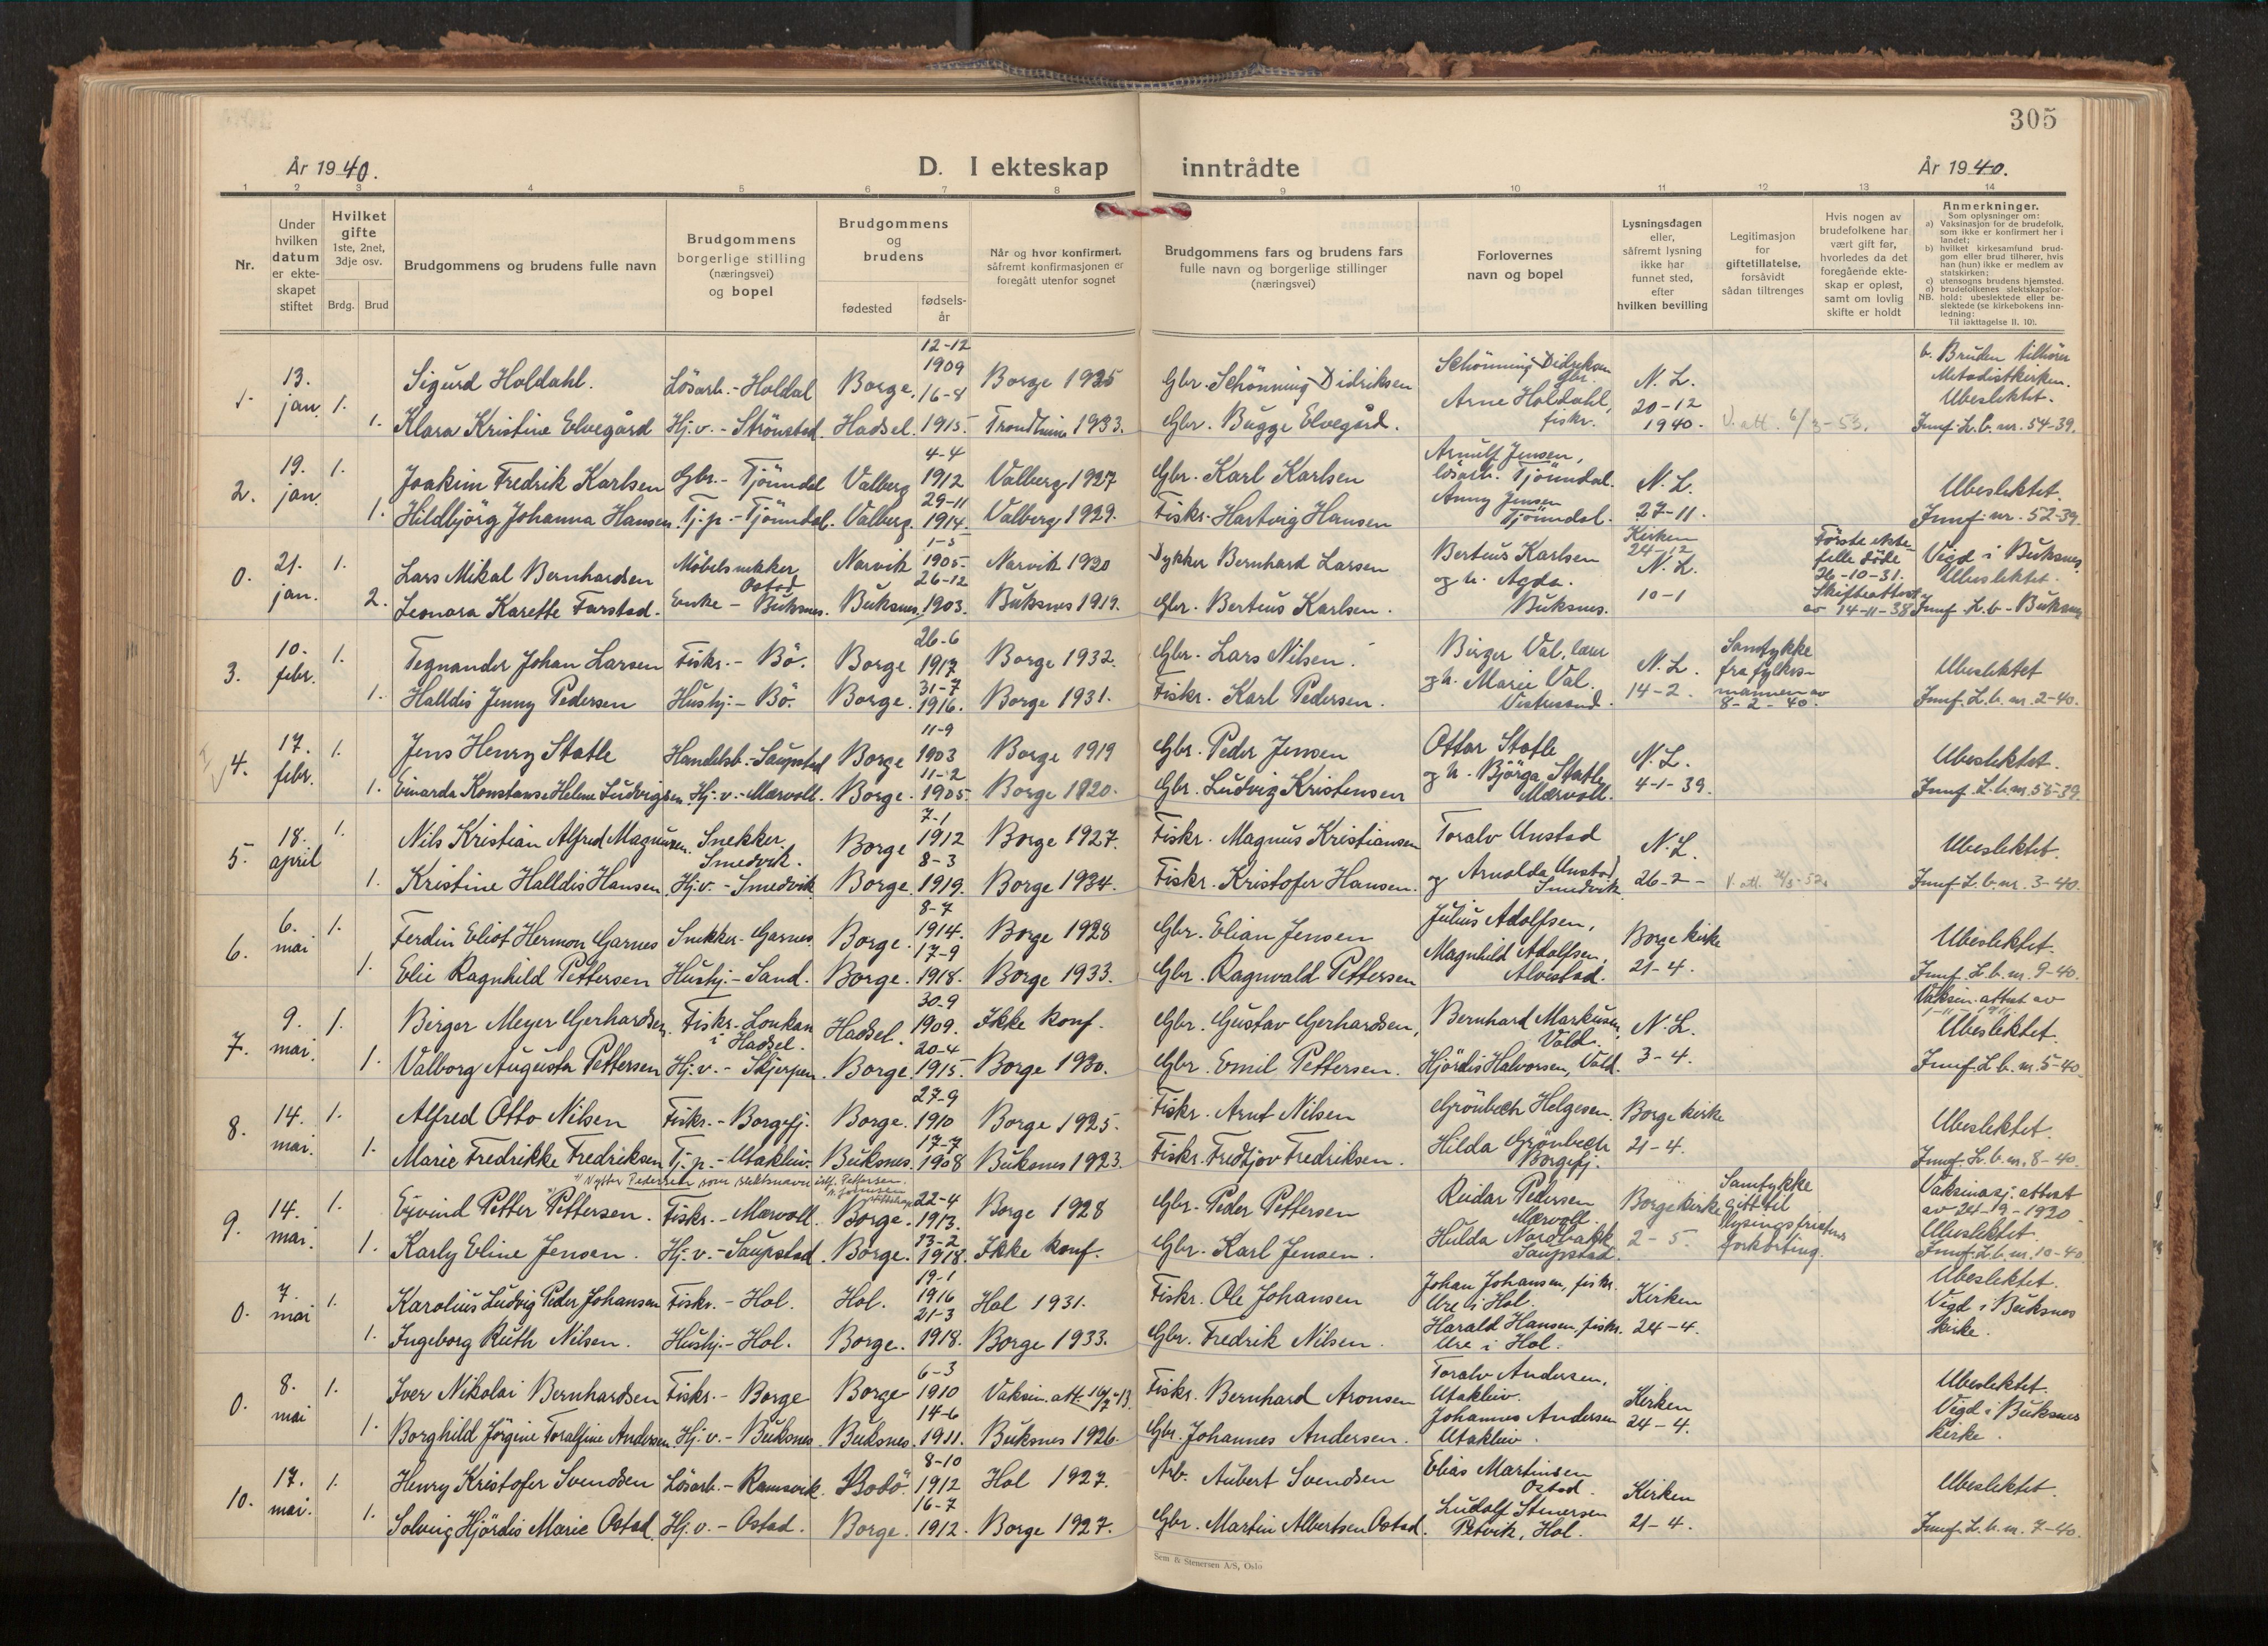 305
År 1940.
D. I ekteskap inntrådte
År 1940.
1 2 3 4 5 6 7 8 9 10 11 12 13 14
Nr.
Under hvilken datum er ekteskapet stiftet
Hvilket gifte 1ste, 2net, 3dje osv.
Brdg. Brud
Brudgommens og brudens fulle navn
Brudgommens borgerlige stilling (næringsvei) og bopel
Brudgommens og brudens
fødested
fødsels-år
Når og hvor konfirmert. såfremt konfirmasjonen er foregått utenfor sognet
Brudgommens fars og brudens fars fulle navn og borgerlige stillinger (næringsvei)
Forlovernes navn og bopel
Lysningsdagen eller, såfremt lysning ikke har funnet sted, efter hvilken bevilling
Legitimasjon for giftetillatelse, forsåvidt sådan tiltrenges
Hvis nogen av brudefolkene har vært gift før, hvorledes da det foregående ekteskap er opløst, samt om lovlig skifte er holdt
Anmerkninger.
Som oplysninger om:
a) Vaksinasjon for de brudefolk, som ikke er konfirmert her i landet;
b) hvilket kirkesamfund brudgom eller brud tilhører, hvis han (hun) ikke er medlem av statskirken;
c) utensogns brudens hjemsted.
d) brudefolkenes slektskapsforhold: ubeslektede eller beslektede (se kirkebokens innledning:
NB.
Til iakttagelse II. 10).
1. 13. jan. 1. Sigurd Holdahl. Lösarb. - Holdal Borge. 12-12 1909 Borge 1925 Gbr. Schönning Didriksen Schönning Didriksen Gbr. N. L. b. Bruden tilhører Metodistkirken.
1. Klara Kristine Elvegård Hj.v. - Strönstad. Hadsel. 16-8 1915. Trondheim 1933. Gbr. Bugge Elvegård. Arne Holdahl, fiskr. 20-12 1940. V. att. 6/3-53. Ubeslektet. Jnmf. L. b. nr. 54-39.
2. 19. jan. 1. Joakim Fredrik Karlsen Gbr. - Tjönndal Valberg 4-4 1912 Valberg 1927 Gbr. Karl Karlsen Arnulf Jensen, lösarb. Tjönndal. N. L. Ubeslektet.
1. Hildbjörg Johanna Hansen Tj.p. - Tjönndal. Valberg. 29-11 1914. Valberg 1929. Fiskr. Hartvig Hansen Anny Jensen Tjönndal. 27-11. Jnmf. nr. 52-39.
0. 21. jan. 1. Lars Mikal Bernhardsen Möbelsnekker Ostad Narvik 1-5 1905. Narvik 1920 Dykker Bernhard Larsen Berteus Karlsen Kirken 24-12 N. L. Första ektefelle döde 26-10-31. Vigd i Buksnes. Ubeslektet.
2. Leonara Karette Farstad. Enke - Buksnes. Buksnes. 26-12 1903. Buksnes 1919. Gbr. Berteus Karlsen. og h. Agda. Buksnes. 10-1 Skifteattest av 14-11-38 Jnmf. L. b. Buksnes
3. 10. febr. 1. Tegnander Johan Larsen Fiskr. - Bö. Borge 26-6 1917 Borge 1932. Gbr. Lars Nilsen. Birger Val, lær N. L. Samtykke fra fylkesmannen av 8-2-40. Ubeslektet
1. Halldis Jenny Pedersen Hushj. - Bö. Borge. 31-7 1916. Borge 1931. Fiskr. Karl Pedersen. og h. Marie Val. Vestresand. 14-2. Jnmf. L. b. nr. 2-40.
4. 17. febr. 1. Jens Henry Statle Handelsb. - Saupstad Borge 11-9 1903 Borge 1919 Gbr. Peder Jensen Ottar Statle N. L. Ubeslektet.
1. Einarda Konstanse Helene Ludvigsen. Hj.v. - Mærvoll. Borge. 11-2 1905. Borge 1920. Gbr. Ludvig Kristensen og h. Björga Statle, Mærvoll. 4-1-39. Jnmf. L. b. nr. 55-39.
5. 18. april 1. Nils Kristian Alfred Magnussen. Snekker Smedvik. Borge 7-1 1912 Borge 1927. Fiskr. Magnus Kristiansen Toralv Unstad N. L. Ubeslektet.
1. Kristine Halldis Hansen Hj.v. - Smedvik. Borge. 8-3 1919. Borge 1934. Fiskr. Kristofer Hansen. og Arnolda Unstad, Smedvik. 26-2- V. att. Jnmf. L. b. nr. 3-40.
6. 6. mai 1. Ferdin Eliot Hermon Garnes Snekker - Garnes. Borge. 8-7 1914. Borge 1928 Gbr. Elian Jensen Julius Adolfsen, Borge kirke Ubeslektet.
1. Elie Ragnhild Pettersen Hushj. - Sand. Borge. 17-9 1918. Borge 1933. Gbr. Ragnvald Pettersen Magnhild Adolfsen, Alvestad. 21-4. Jnmf. L. b. nr. 9-40.
7. 9. mai. 1. Birger Meyer Gerhardsen. Fiskr. - Lonkan i Hadsel. Hadsel. 30-9 1909. Ikke konf. Gbr. Gustav Gerhardsen, Bernhard Markusen, Vald. N. L. Vaksin. attest av Ubeslektet.
1. Valborg Augusta Pettersen Hj.v. - Skjerpen. Borge. 20-4 1915. Borge 1930. Gbr. Emil Pettersen. Hjördis Halvorsen, Vald. 3-4. Jnmf. L. b. nr. 5-40.
8. 14. mai. 1. Alfred Otto Nilsen Fiskr. - Borgefj. Borge. 27-9 1910 Borge 1925. Fiskr. Arnt Nilsen Grönbech Helgesen. Borge kirke Ubeslektet.
1. Marie Fredrikke Fredriksen Tj.p. - Utakleiv. Buksnes. 17-7 1908 Buksnes 1923. Fiskr. Fredtjov Fredriksen. Hilda Grönbech Borgefj. 21-4. Jnmf. L. b. nr. 8-40.
*) Nytter Pedersen som slektsnavn istf. Pettersen.
9. 14. mai. 1. Eyvind Petter Pettersen. Fiskr. - Mærvoll. Borge. 22-4 1913. Borge 1928 Gbr. Peder Pettersen Reidar Pedersen Mærvoll. Borge kirke Samtykke gitt til lysingsfristens forkorting. Vaksinasj. attest av 24-9-1920
1. Karly Eline Jensen. Hj.v. - Saupstad. Borge. 13-2 1918. Ikke konf. Gbr. Karl Jensen. Hulda Nordbakk Saupstad. 2-5. Ubeslektet. Jnmf. L. b. nr. 10-40
0. 7. mai 1. Karolius Ludvig Peder Johansen Fiskr. - Hol. Hol. 19-1 1916 Hol 1931. Fiskr. Ole Johansen Johan Johansen, fiskr. Ure i Hol. Kirken Ubeslektet.
1. Ingeborg Ruth Nilsen. Hushj. - Hol. Borge. 21-3 1918. Borge 1933. Gbr. Fredrik Nilsen. Harald Hansen, fiskr. Ure i Hol. 24-4. Vigd i Buksnes kirke.
0. 8. mai 1. Iver Nikolai Bernhardsen Fiskr. - Borge Borge 6-3 1910 Vaksin. att. 16/7-13. Fiskr. Bernhard Aronsen Toralv Andersen, Utakleiv. Kirken Ubeslektet.
1. Borghild Jörgine Toralfine Andersen Hj.v. - Buksnes. Buksnes. 14-6 1911. Buksnes 1926. Gbr. Johannes Andersen. Johannes Andersen Utakleiv. 24-4. Vigd i Buksnes kirke.
10. 17. mai. 1. Henry Kristofer Svendsen Lösarb. - Ramsvik. Bodö. 8-10 1912 Hol 1927. Arb. Aubert Svendsen Elias Martinsen Ostad. Kirken Ubeslektet.
1. Solveig Hjördis Marie Ostad. Hj.v. - Ostad. Borge. 16-7 1912. Borge 1927. Gbr. Martin Albertsen Ostad. Ludolf Stenersen Petvik, Hol. 21-4. Jnmf. L. b. nr. 7-40.
Sem & Stenersen A/S, Oslo